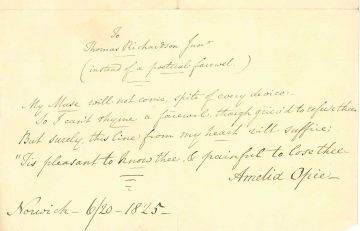 To
Thomas Richardson Junr
(instead of a poetical farewel.)
My Muse will not come, spite of every device:
So I can't rhyme a farewel, though griev'd to refuse thee
But surely, this line from my heart will suffice;
"Tis pleasant to know thee, & painful to lose thee
Amelia Opie
Norwich - 6/20 - 1825 -